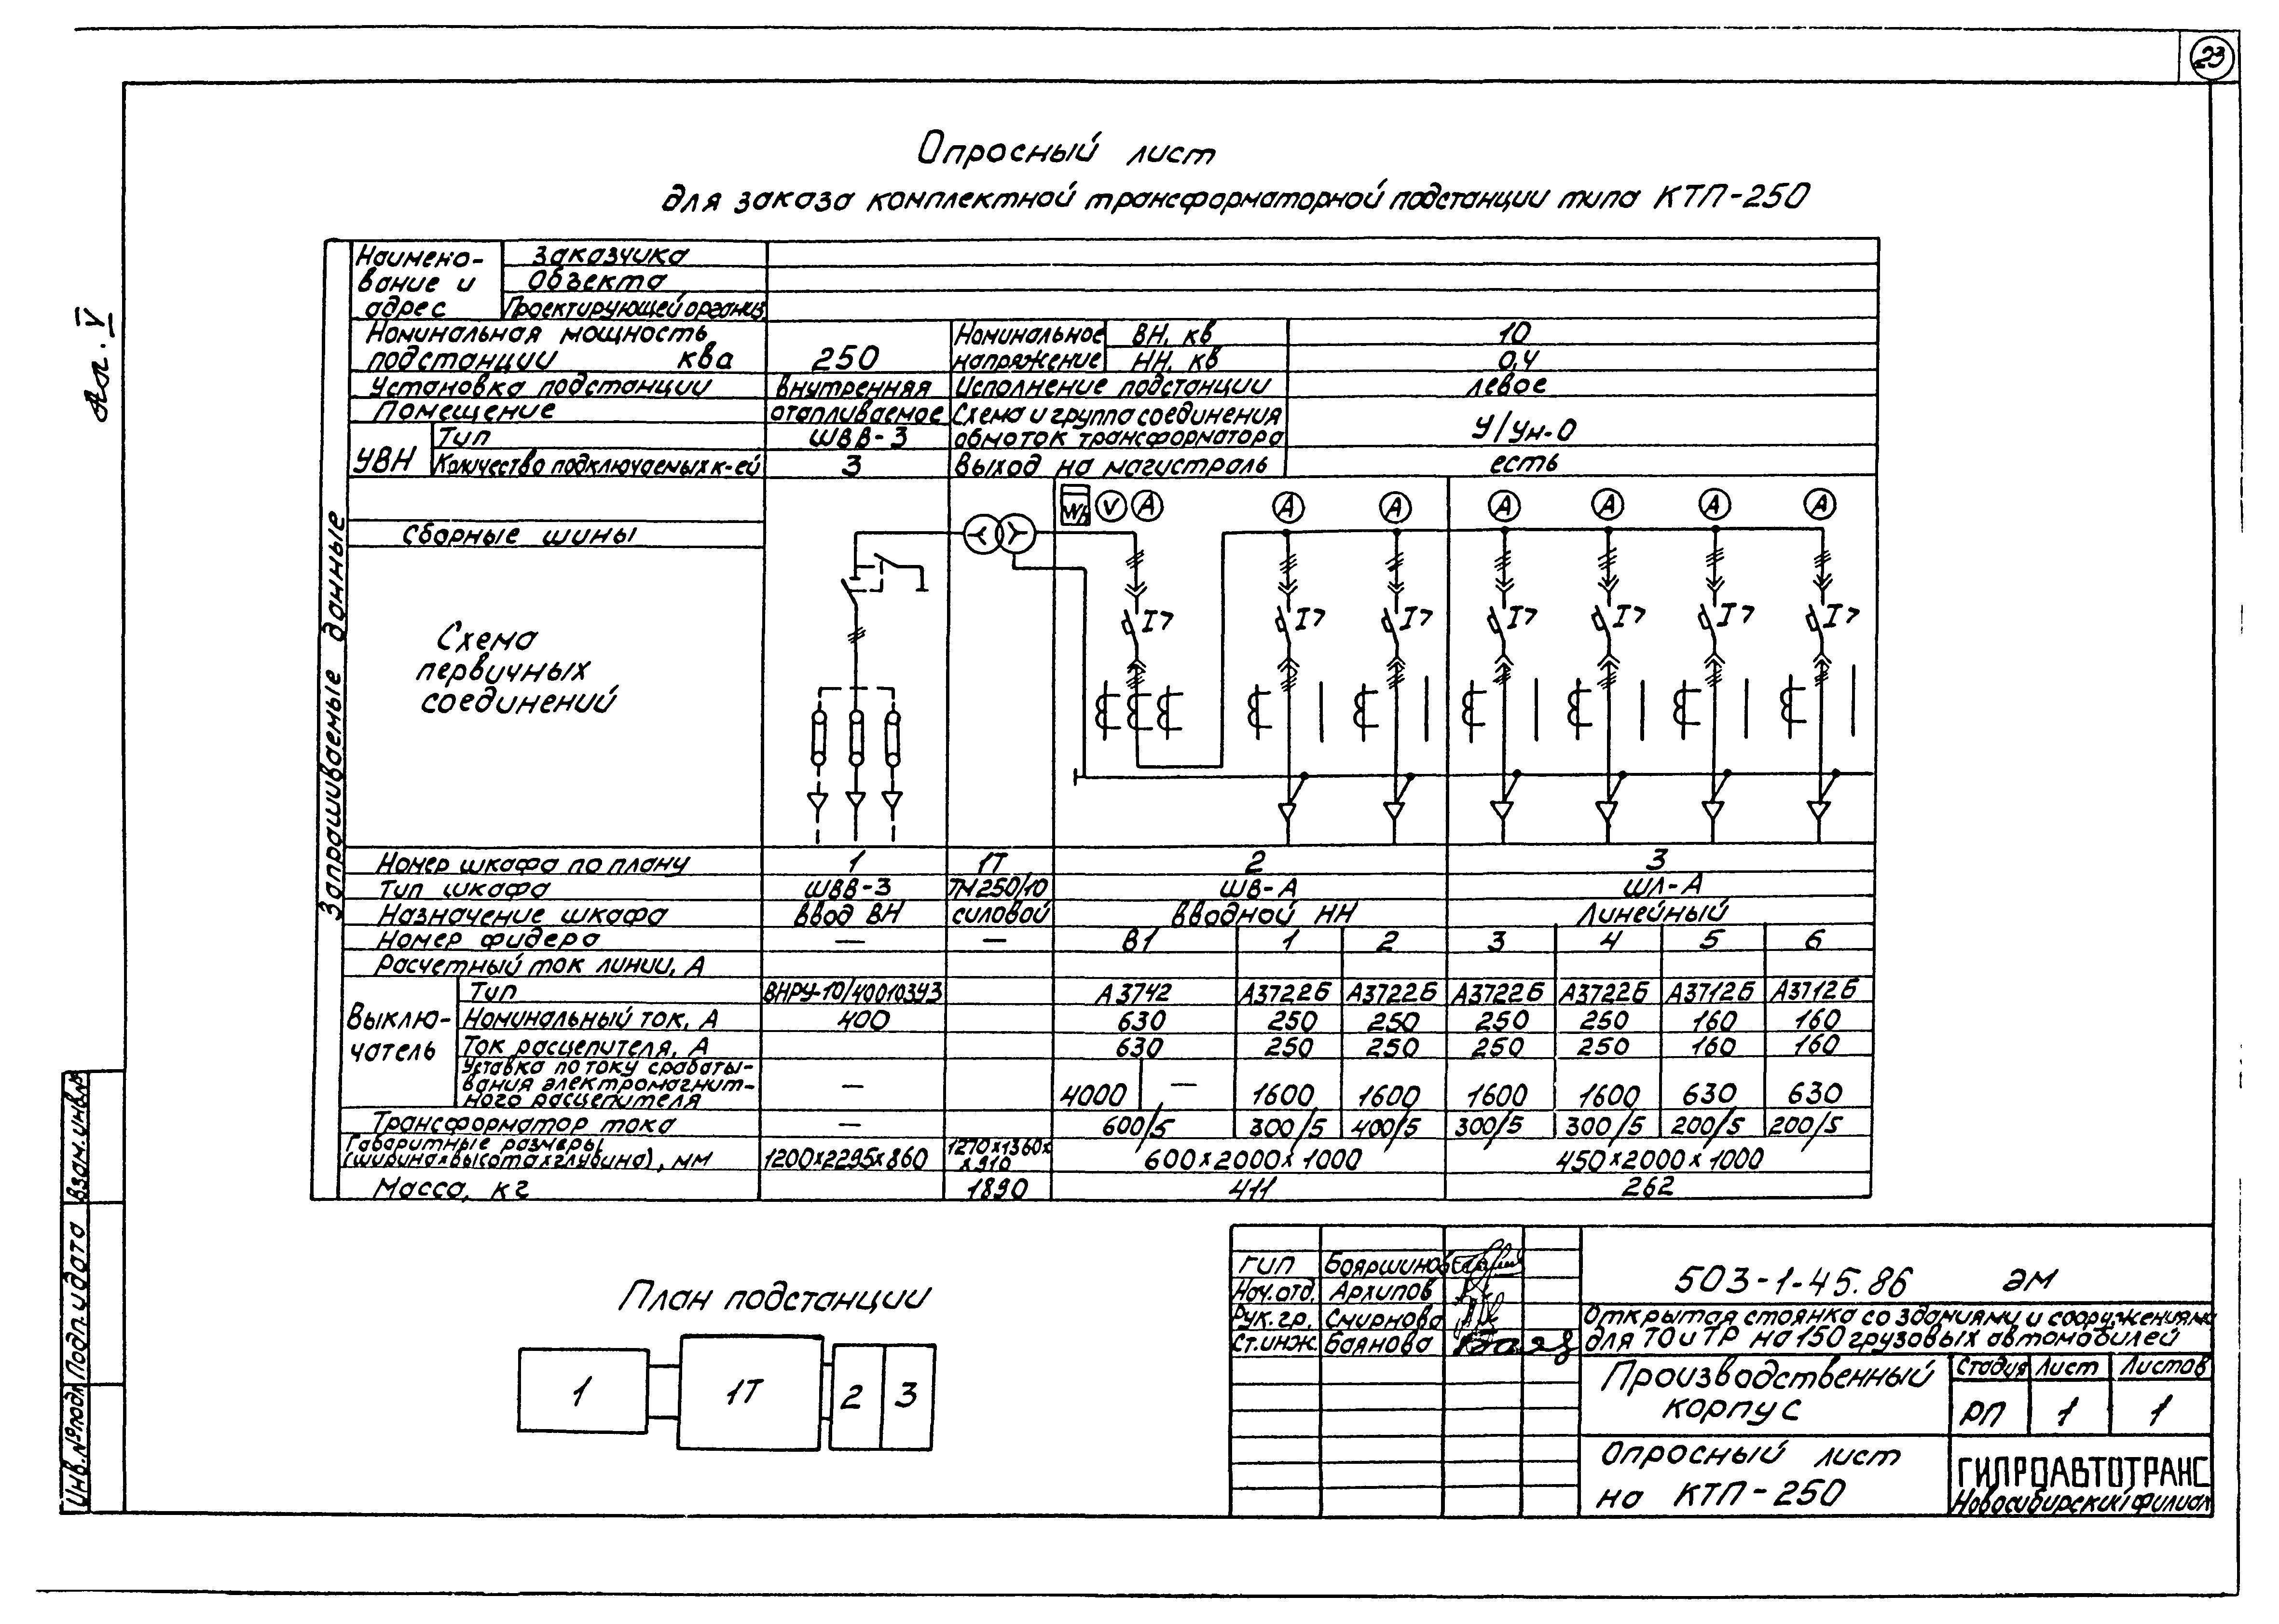 23
Ал. V
Опросный лист
для заказа комплектной трансформаторной подстанции типа КТП-250
Запрашиваемые данные
Наимено-
вание и
адрес
Заказчика
Объекта
Проектирующей организ.
Номинальная мощность
подстанции ква
250
Номинальное
напряжение
ВН, кв
10
НН, кв
0,4
Установка подстанции
внутренняя
Исполнение подстанции
левое
Помещение
отапливаемое
Схема и группа соединения
обмоток трансформатора
У/Ун-0
УВН
Тип
ШВВ-3
Количество подключаемых к-ей
3
Выход на магистраль
есть
Wh V A A A A A A A
Сборные шины
Схема
первичных
соединений
I> I> I> I> I> I> I>
Номер шкафа по плану 1 1Т 2 3
Тип шкафа ШВВ-3 ТМ250/10 ШВ-А ШЛ-А
Назначение шкафа Ввод ВН силовой Вводной НН Линейный
Номер фидера — — В1 1 2 3 4 5 6
Расчетный ток линии, А
Выклю-
чатель
Тип ВНРУ-10/400103У3 А3742 А3722Б А3722Б А3722Б А3722Б А3712Б А3712Б
Номинальный ток, А 400 630 250 250 250 250 160 160
Ток расцепителя, А 630 250 250 250 250 160 160
Уставка по току срабаты-
вания электромагнит-
ного расцепителя
— 4000 — 1600 1600 1600 1600 630 630
Трансформатор тока — 600/5 300/5 400/5 300/5 300/5 200/5 200/5
Габаритные размеры
(ширинахвысотахглубина), мм
1200х2295х860
1270х1360х
х910
600х2000х1000
450х2000х1000
Масса, кг 1890 411 262
План подстанции
1 1Т 2 3
Взам.инв.№
Подп. и дата
Инв.№подл
ГИП Бояршинов
Нач.отд. Архипов
Рук.гр. Смирнова
Ст.инж. Баянова
503-1-45.86 ЭМ
Открытая стоянка со зданиями и сооружениями
для ТО и ТР на 150 грузовых автомобилей
Производственный
корпус
Стадия Лист Листов
РП 1 1
Опросный лист
на КТП-250
ГИПРОАВТОТРАНС
Новосибирский филиал